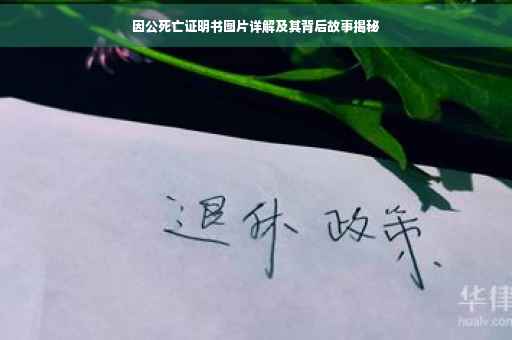 因公死亡证明书图片详解及其背后故事揭秘
退休 政策
华律
hualv.com